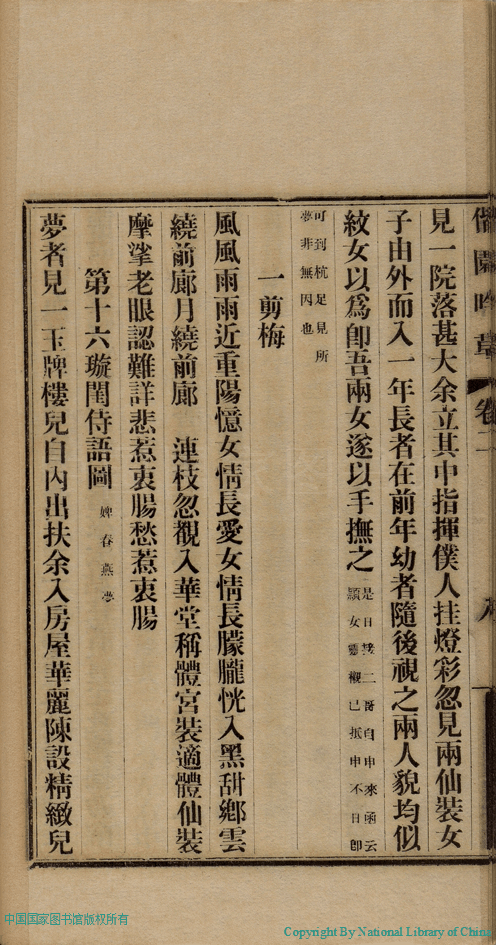 園吟草 卷二 八
見一院落甚大余立其中指揮僕人挂燈彩忽見兩仙裝女
子由外而入一年長者在前年幼者隨後視之兩人貌均似
紋女以爲卽吾兩女遂以手撫之 是日接二爾自申來函云
顯女靈櫬已抵申不日卽
可到杭足見所
夢非無因也
一剪梅
風風雨雨近重陽憶女情長愛女情長朦朧恍入黑甜鄉雲
繞前廊月繞前廊 連枝忽覩入華堂稱體宮裝適體仙裝
摩挲老眼認難詳悲惹衷腸愁惹衷腸
第十六璇閨侍語圖 婢春燕夢
夢者見一玉牌樓兒自內出扶余入房屋華麗陳設精緻兒
中国国家图书馆版权所有
Copyright By National Library of China